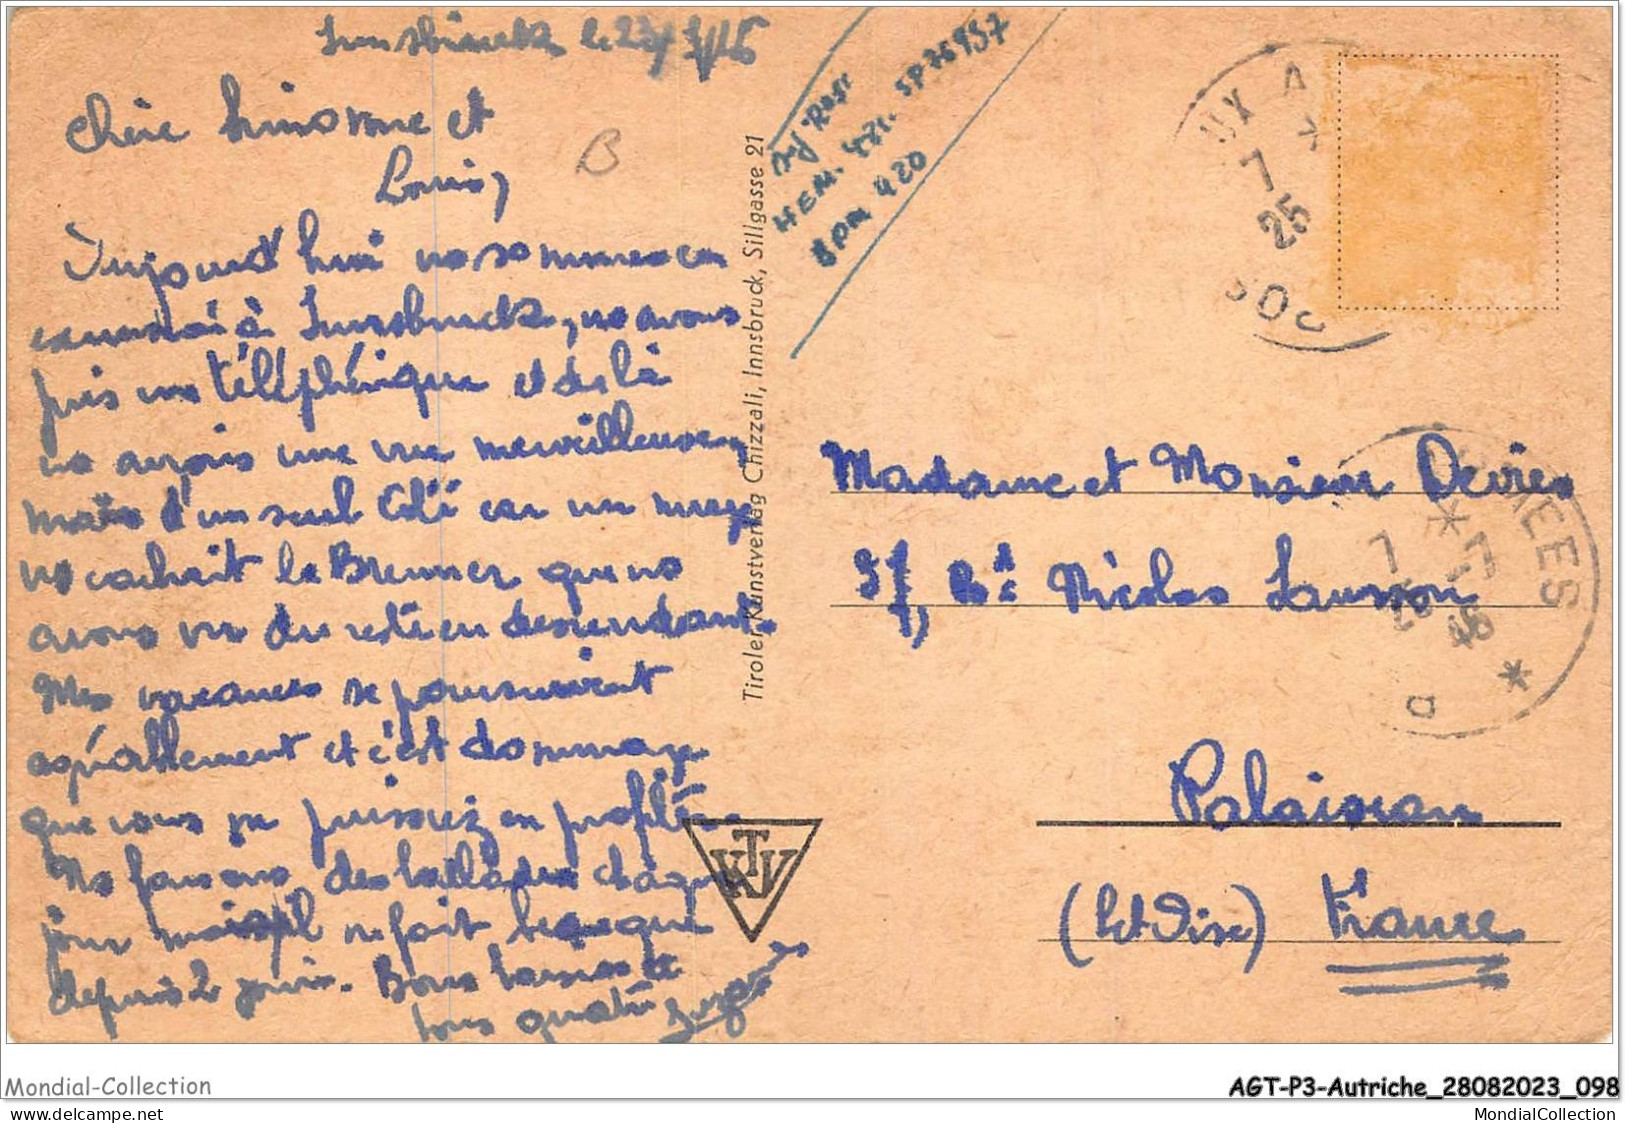 Innsbruck le 23/7/46
Chère et
Louis,
Aujourd'hui ns sommes en
à Innsbruck, ns avons
pris un téléphérique et de là
ns avons une vue merveilleuse
mais d'un seul côté car un nuage
ns cachait le Brenner que ns
avons vu du reste en descendant.
Mes vacances se poursuivent
agréablement et c'est dommage
que vous ne puissiez en profiter.
Ns faisons des ballades chaque
jour mais il ne fait beau que
depuis 2 jours. Bons baisers à
tous quatre Suzanne
HEM. 471. SP76957
BPM 420
Tiroler Kunstverlag Chizzali, Innsbruck, Sillgasse 21
KTV
UX A
7
25
ARMEES
7
25
46
Madame et Monsieur Devies
Bd Nicolas Samson
Palaiseau
(Set Oise) France
Mondial-Collection
AGT-P3-Autriche_28082023_098
www.delcampe.net
MondialCollection